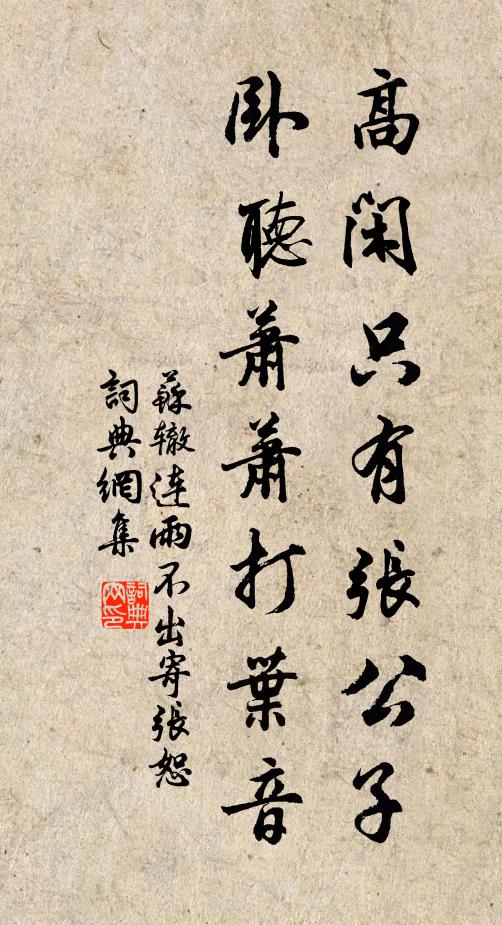 高閑只有張公子
卧聽蕭蕭打葉音
蘇辙連雨不出寄張恕
詞典網集
詞典網印